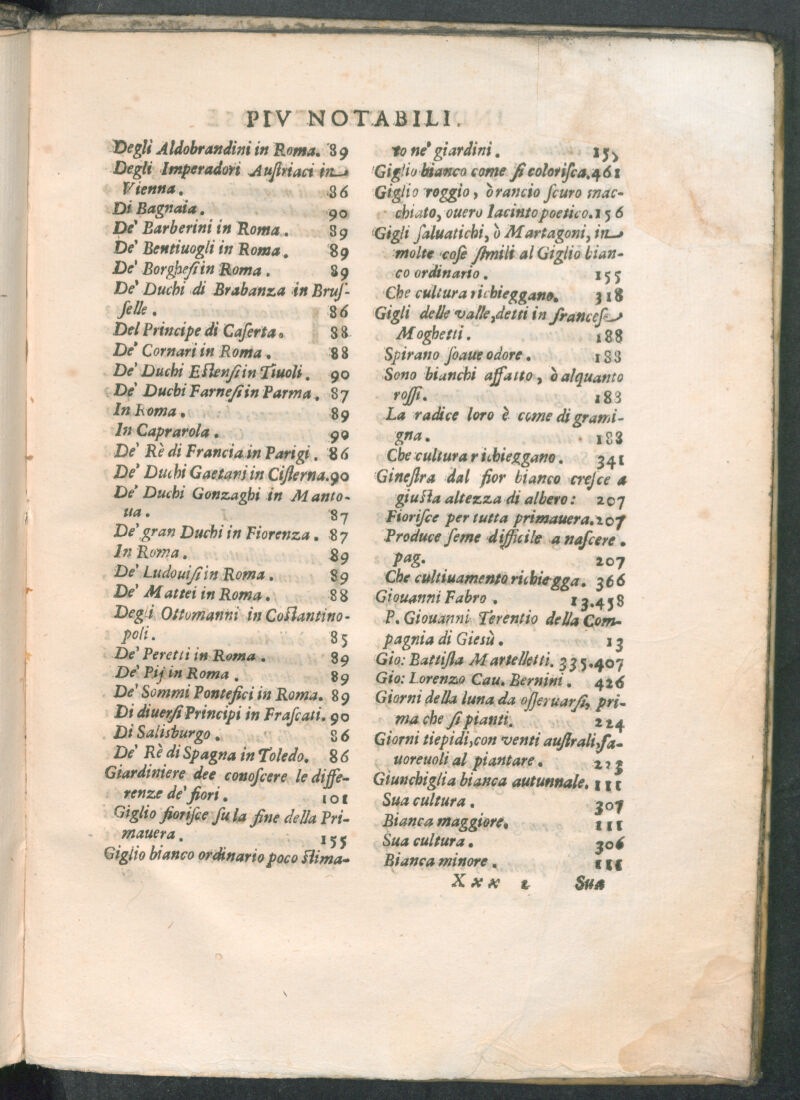 PIV NOTABILI.
Degli Aldobrandini in Roma. 89
Degli Imperadori Auſtriaci in
Vienna. 86
Di Bagnaia. 90
De' Barberini in Roma. 89
De' Bentiuogli in Roma. 89
De' Borgheſi in Roma. 89
De' Duchi di Brabanza in Bruſ-
ſelle. 86
Del Principe di Caſerta. 88
De' Cornari in Roma. 88
De' Duchi Eſtenſi in Tiuoli. 90
De' Duchi Farneſi in Parma. 87
In Roma. 89
In Caprarola. 90
De' Rè di Francia in Parigi. 86
De' Duchi Gaetani in Ciſterna. 90
De' Duchi Gonzaghi in Manto-
ua. 87
De' gran Duchi in Fiorenza. 87
In Roma. 89
De' Ludouiſi in Roma. 89
De' Mattei in Roma. 88
Degli Ottomanni in Coſtantino-
poli. 85
De' Peretti in Roma. 89
De' Pij in Roma. 89
De' Sommi Pontefici in Roma. 89
Di diuerſi Principi in Fraſcati. 90
Di Salisburgo. 86
De' Rè di Spagna in Toledo. 86
Giardiniere dee conoſcere le diffe-
renze de' fiori. 101
Giglio fioriſce ſu la fine della Pri-
mauera. 155
Giglio bianco ordinario poco ſtima-
to ne' giardini. 155
Giglio bianco come ſi coloriſca. 461
Giglio roggio, ò rancio ſcuro mac-
chiato, ouero Iacinto poetico. 156
Gigli ſaluatichi, ò Martagoni, in
molte coſe ſimili al Giglio bian-
co ordinario. 155
Che cultura richieggano. 318
Gigli delle valle, detti in franceſe
Moghetti. 188
Spirano ſoaue odore. 188
Sono bianchi affatto, ò alquanto
roſſi. 188
La radice loro è come di grami-
gna. 188
Che cultura richieggano. 341
Gineſtra dal fior bianco creſce a
giuſta altezza di albero: 207
Fioriſce per tutta primauera. 207
Produce ſeme difficile a naſcere.
pag. 207
Che cultiuamento richiegga. 366
Giouanni Fabro. 13.458
P. Giouanni Terentio della Com-
pagnia di Giesù. 13
Gio: Battiſta Martelletti. 335.407
Gio: Lorenzo Cau. Bernini. 426
Giorni della luna da oſſeruarſi, pri-
ma che ſi pianti. 224
Giorni tiepidi, con venti auſtrali, fa-
uoreuoli al piantare. 223
Giunchiglia bianca autunnale. 111
Sua cultura. 307
Bianca maggiore. 111
Sua cultura. 306
Bianca minore. 111
Xxx 2 Sua